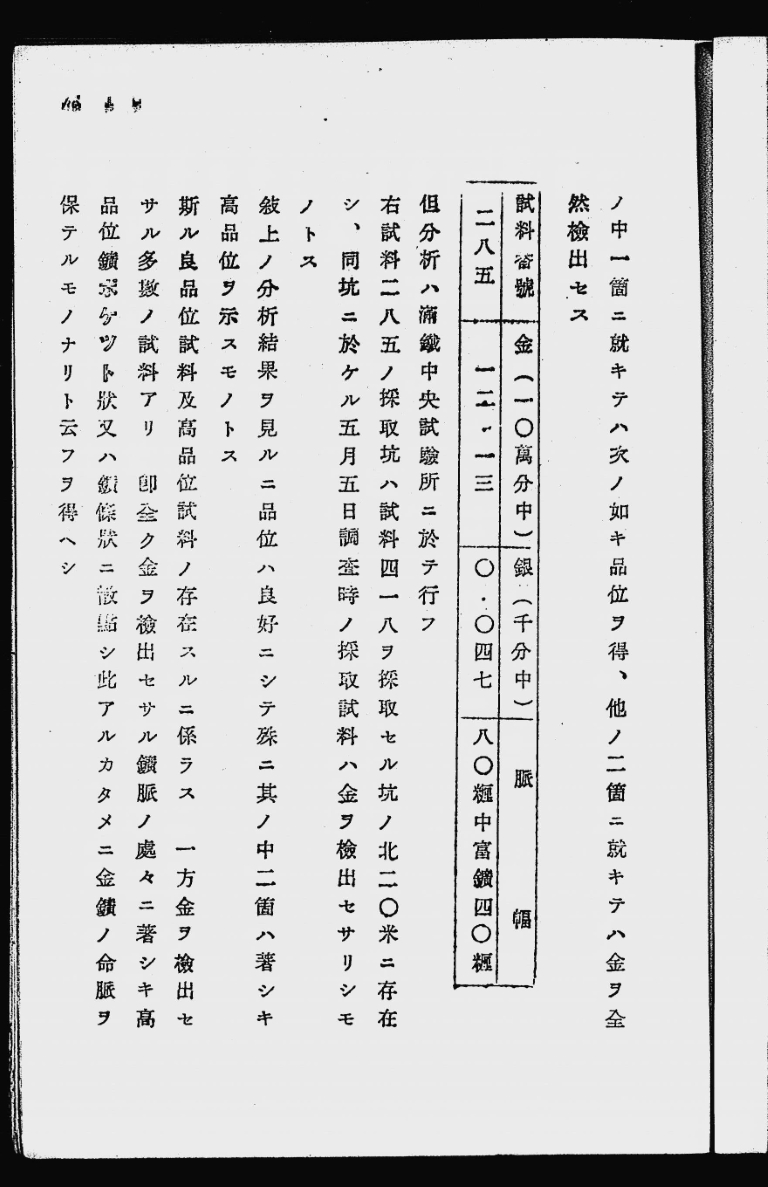 ノ中一箇ニ就キテハ次ノ如キ品位ヲ得、他ノ二箇ニ就キテハ金ヲ全
然檢出セス
試料番號 金(一〇萬分中) 銀(千分中) 脈幅
二八五 一二・一三 〇・〇四七 八〇糎中富鑛四〇糎
但分析ハ滿鐵中央試驗所ニ於テ行フ
右試料二八五ノ採取坑ハ試料四一八ヲ採取セル坑ノ北二〇米ニ存在
シ、同坑ニ於ケル五月五日調査時ノ採取試料ハ金ヲ檢出セサリシモ
ノトス
敍上ノ分析結果ヲ見ルニ品位ハ良好ニシテ殊ニ其ノ中二箇ハ著シキ
高品位ヲ示スモノトス
斯ル良品位試料及高品位試料ノ存在スルニ係ラス 一方金ヲ檢出セ
サル多數ノ試料アリ 卽全ク金ヲ檢出セサル鑛脈ノ處々ニ著シキ高
品位鑛ポケツト狀又ハ鑛條狀ニ散點シ此アルカタメニ金鑛ノ命脈ヲ
保テルモノナリト云フヲ得ヘシ